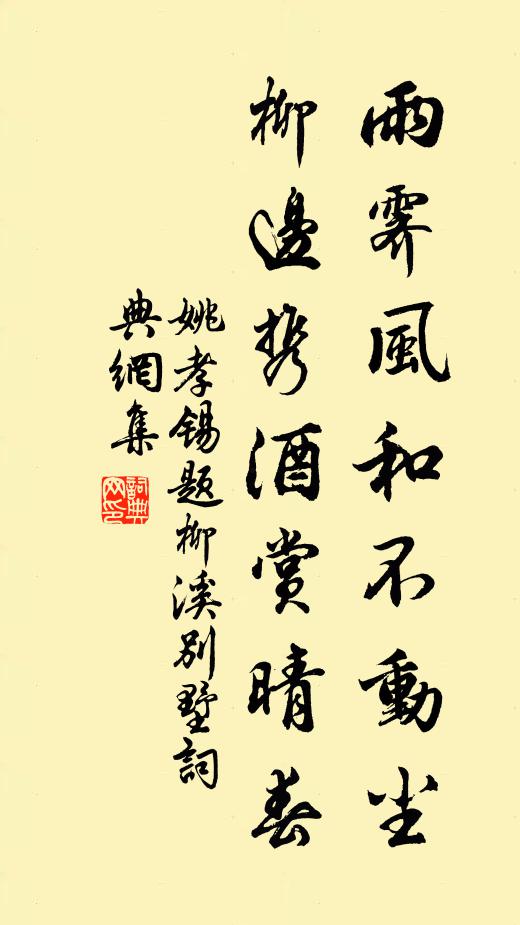 雨霽風和不動尘
柳邊携酒賞晴春
姚孝锡题柳溪别墅詞
典網集
詞典
网印